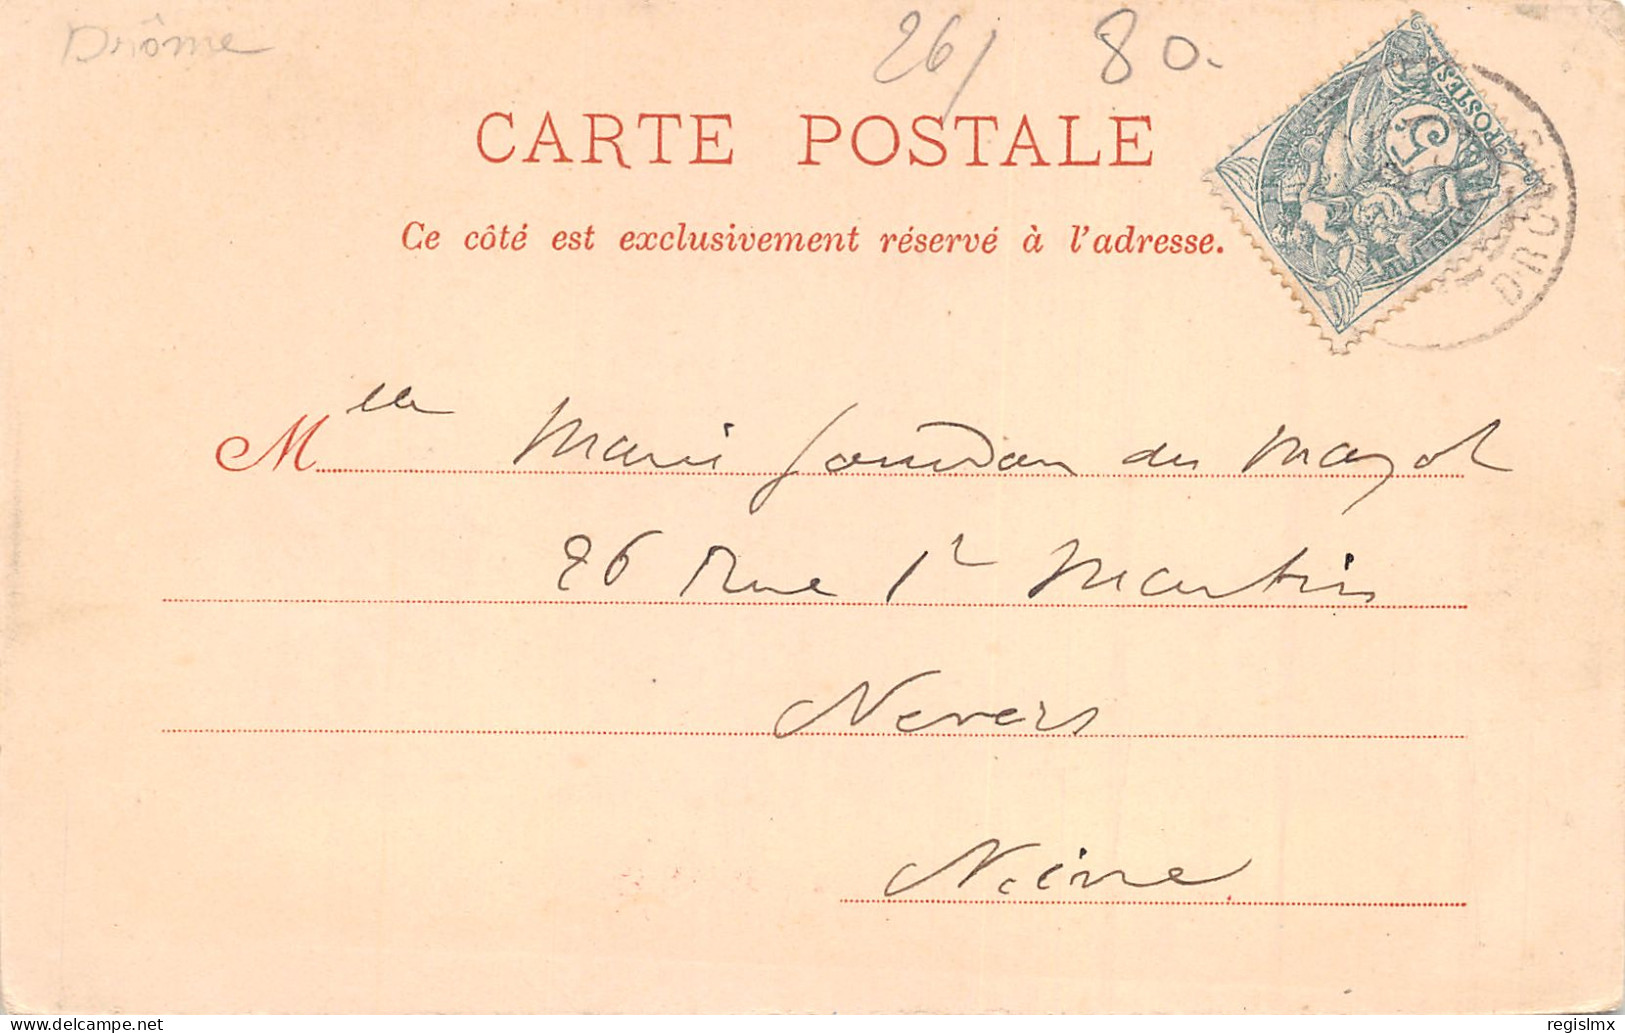 Drôme
26/ 80.
CARTE POSTALE
POSTES
5
DRO
Ce côté est exclusivement réservé à l'adresse.
Mlle Marie Jourdan du Mazel
26 Rue St Martin
Nevers
Nièvre
www.delcampe.net
regislmx